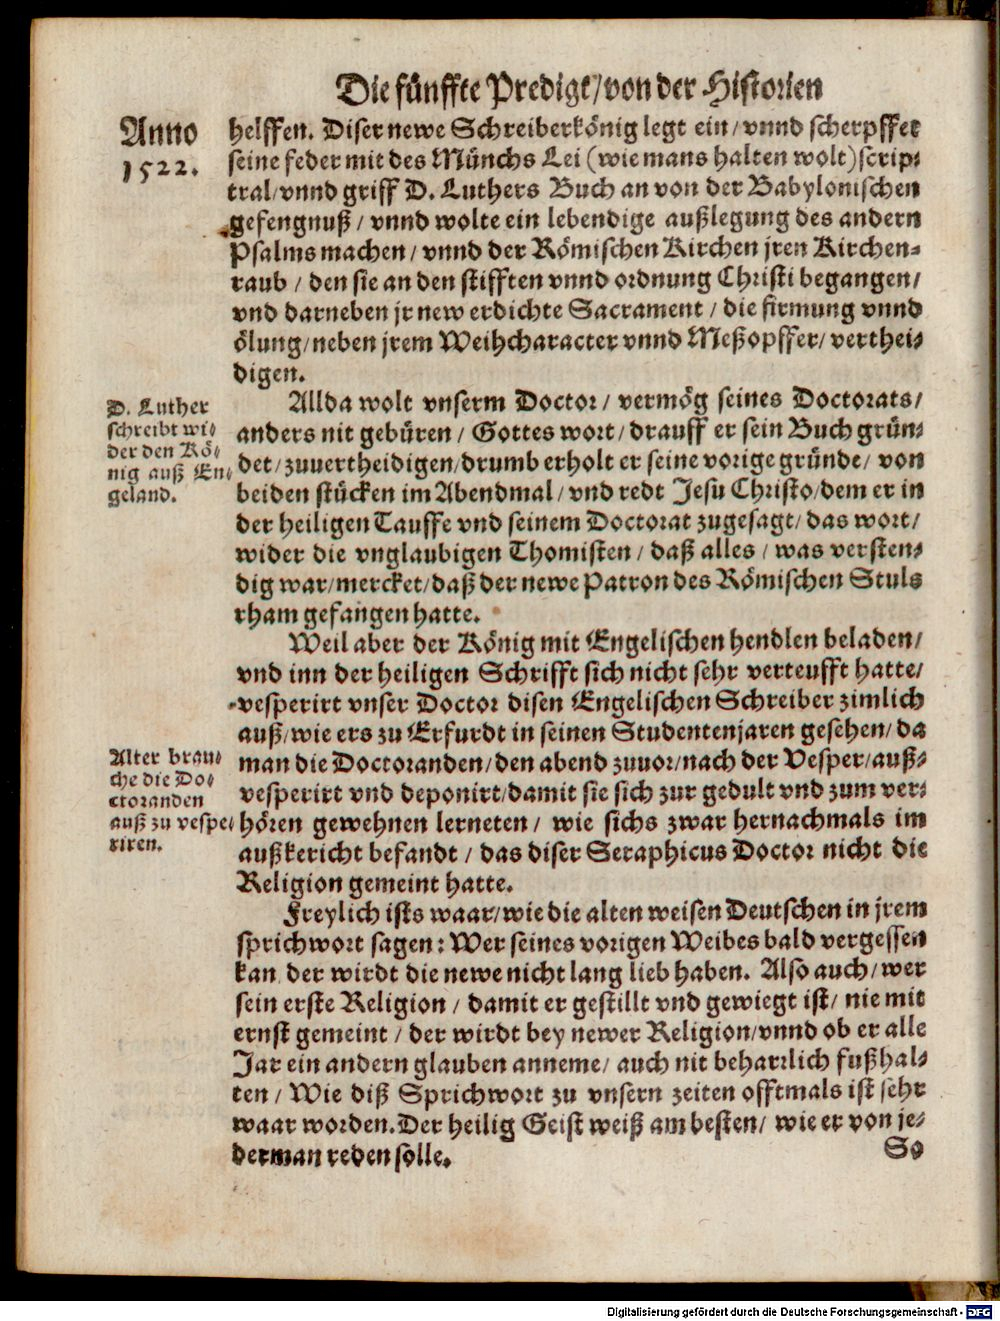 Die fünffte Predigt/von der Historien
Anno
1522.
helffen. Diser newe Schreiberkönig legt ein/vnnd scherpffet
seine feder mit des Münchs Lei (wie mans halten wolt)scrip⸗
tral/vnnd griff D. Luthers Buch an von der Babylonischen
gefengnuß/vnnd wolte ein lebendige außlegung des andern
Psalms machen/vnnd der Römischen Kirchen jren Kirchen⸗
raub/den sie an den stifften vnnd ordnung Christi begangen/
vnd darneben jr new erdichte Sacrament/die firmung vnnd
ölung/neben jrem Weihcharacter vnnd Meßopffer/verthei⸗
digen.
D. Luther
schreibt wi⸗
der den Kö⸗
nig auß En⸗
geland.
Allda wolt vnserm Doctor/vermög seines Doctorats/
anders nit gebüren/Gottes wort/drauff er sein Buch grün⸗
det/zuuertheidigen/drumb erholt er seine vorige gründe/von
beiden stücken im Abendmal/vnd redt Jesu Christo/dem er in
der heiligen Tauffe vnd seinem Doctorat zugesagt/das wort/
wider die vnglaubigen Thomisten/daß alles/was versten⸗
dig war/mercket/daß der newe Patron des Römischen Stuls
rham gefangen hatte.
Weil aber der König mit Engelischen hendlen beladen/
vnd inn der heiligen Schrifft sich nicht sehr verteufft hatte/
vesperirt vnser Doctor disen Engelischen Schreiber zimlich
auß/wie ers zu Erfurdt in seinen Studentenjaren gesehen/da
Alter brau⸗
che die Do⸗
ctoranden
auß zu vespe⸗
riren.
man die Doctoranden/den abend zuuor/nach der Vesper/auß⸗
vesperirt vnd deponirt/damit sie sich zur gedult vnd zum ver⸗
hören gewehnen lerneten/wie sichs zwar hernachmals im
außkericht befandt/das diser Seraphicus Doctor nicht die
Religion gemeint hatte.
Freylich ists waar/wie die alten weisen Deutschen in jrem
sprichwort sagen: Wer seines vorigen Weibes bald vergessen
kan der wirdt die newe nicht lang lieb haben. Also auch/wer
sein erste Religion/damit er gestillt vnd gewiegt ist/nie mit
ernst gemeint/der wirdt bey newer Religion/vnnd ob er alle
Jar ein andern glauben anneme/auch nit beharrlich fußhal⸗
ten/Wie diß Sprichwort zu vnsern zeiten offtmals ist sehr
waar worden. Der heilig Geist weiß am besten/wie er von je⸗
derman reden solle.
So
Digitalisierung gefördert durch die Deutsche Forschungsgemeinschaft - DFG